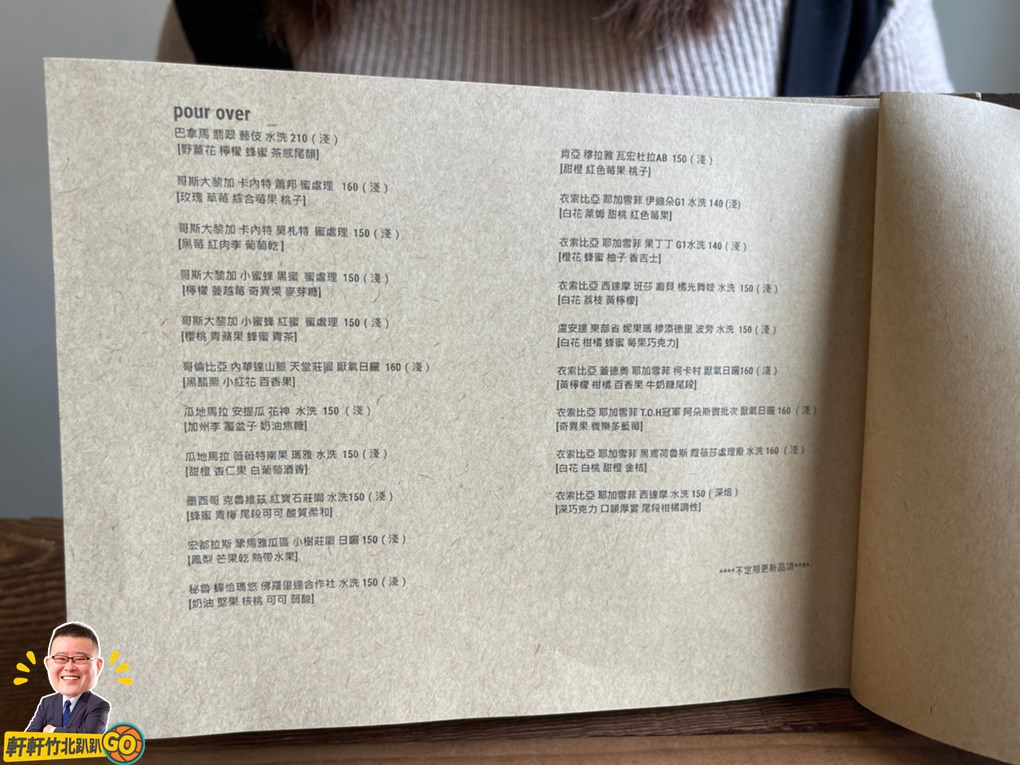 pour over
巴拿馬 翡翠 藝伎 水洗 210 ( 淺 )
[野薑花 檸檬 蜂蜜 茶感尾韻]
哥斯大黎加 卡內特 蕭邦 蜜處理 160 ( 淺 )
[玫瑰 草莓 綜合莓果 桃子]
哥斯大黎加 卡內特 莫札特 蜜處理 150 ( 淺 )
[黑莓 紅肉李 葡萄乾 ]
哥斯大黎加 小蜜蜂 黑蜜 蜜處理 150 ( 淺 )
[檸檬 蔓越莓 奇異果 麥芽糖]
哥斯大黎加 小蜜蜂 紅蜜 蜜處理 150 ( 淺 )
[櫻桃 青蘋果 蜂蜜 青茶]
哥倫比亞 內華達山脈 天堂莊園 厭氧日曬 160 ( 淺 )
[黑醋栗 小紅花 百香果]
瓜地馬拉 安提瓜 花神 水洗 150 ( 淺 )
[加州李 覆盆子 奶油焦糖]
瓜地馬拉 薇薇特南果 瑪雅 水洗 150 ( 淺 )
[甜橙 杏仁果 白葡萄酒香]
墨西哥 克魯維茲 紅寶石莊園 水洗150 ( 淺 )
[蜂蜜 青梅 尾段可可 酸質柔和]
宏都拉斯 馬雅瓜區 小樹莊園 日曬 150 ( 淺 )
[鳳梨 芒果乾 熱帶水果]
秘魯 蟬恰瑪悠 佛羅里達合作社 水洗 150 ( 淺 )
[奶油 堅果 核桃 可可 弱酸]
肯亞 穆拉雅 瓦宏杜拉AB 150 ( 淺 )
[甜橙 紅色莓果 桃子]
衣索比亞 耶加雪菲 伊迪朵G1 水洗 140 (淺)
[白花 萊姆 甜桃 紅色莓果]
衣索比亞 耶加雪菲 果丁丁 G1水洗 140 ( 淺 )
[橙花 蜂蜜 柚子 香吉士]
衣索比亞 西達摩 班莎 廠貝 橘光舞妓 水洗 150 ( 淺 )
[白花 荔枝 黃檸檬]
盧安達 東部省 妮果瑪 穆添德里 波旁 水洗 150 ( 淺 )
[白花 柑橘 蜂蜜 莓果巧克力]
衣索比亞 蓋德奧 耶加雪菲 柯卡村 厭氧日曬160 ( 淺 )
[黃檸檬 柑橘 百香果 牛奶糖尾段]
衣索比亞 耶加雪菲 T.O.H冠軍 阿朵斯微批次 厭氧日曬 160 ( 淺 )
[奇異果 養樂多藍莓]
衣索比亞 耶加雪菲 黑鳶荷魯斯 霞蓓莎處理廠 水洗 160 ( 淺 )
[白花 白桃 甜橙 金桔]
衣索比亞 耶加雪菲 西達摩 水洗 150 ( 深焙 )
[深巧克力 口韻厚實 尾段柑橘調性]
****不定期更新品項****
軒軒竹北趴趴GO